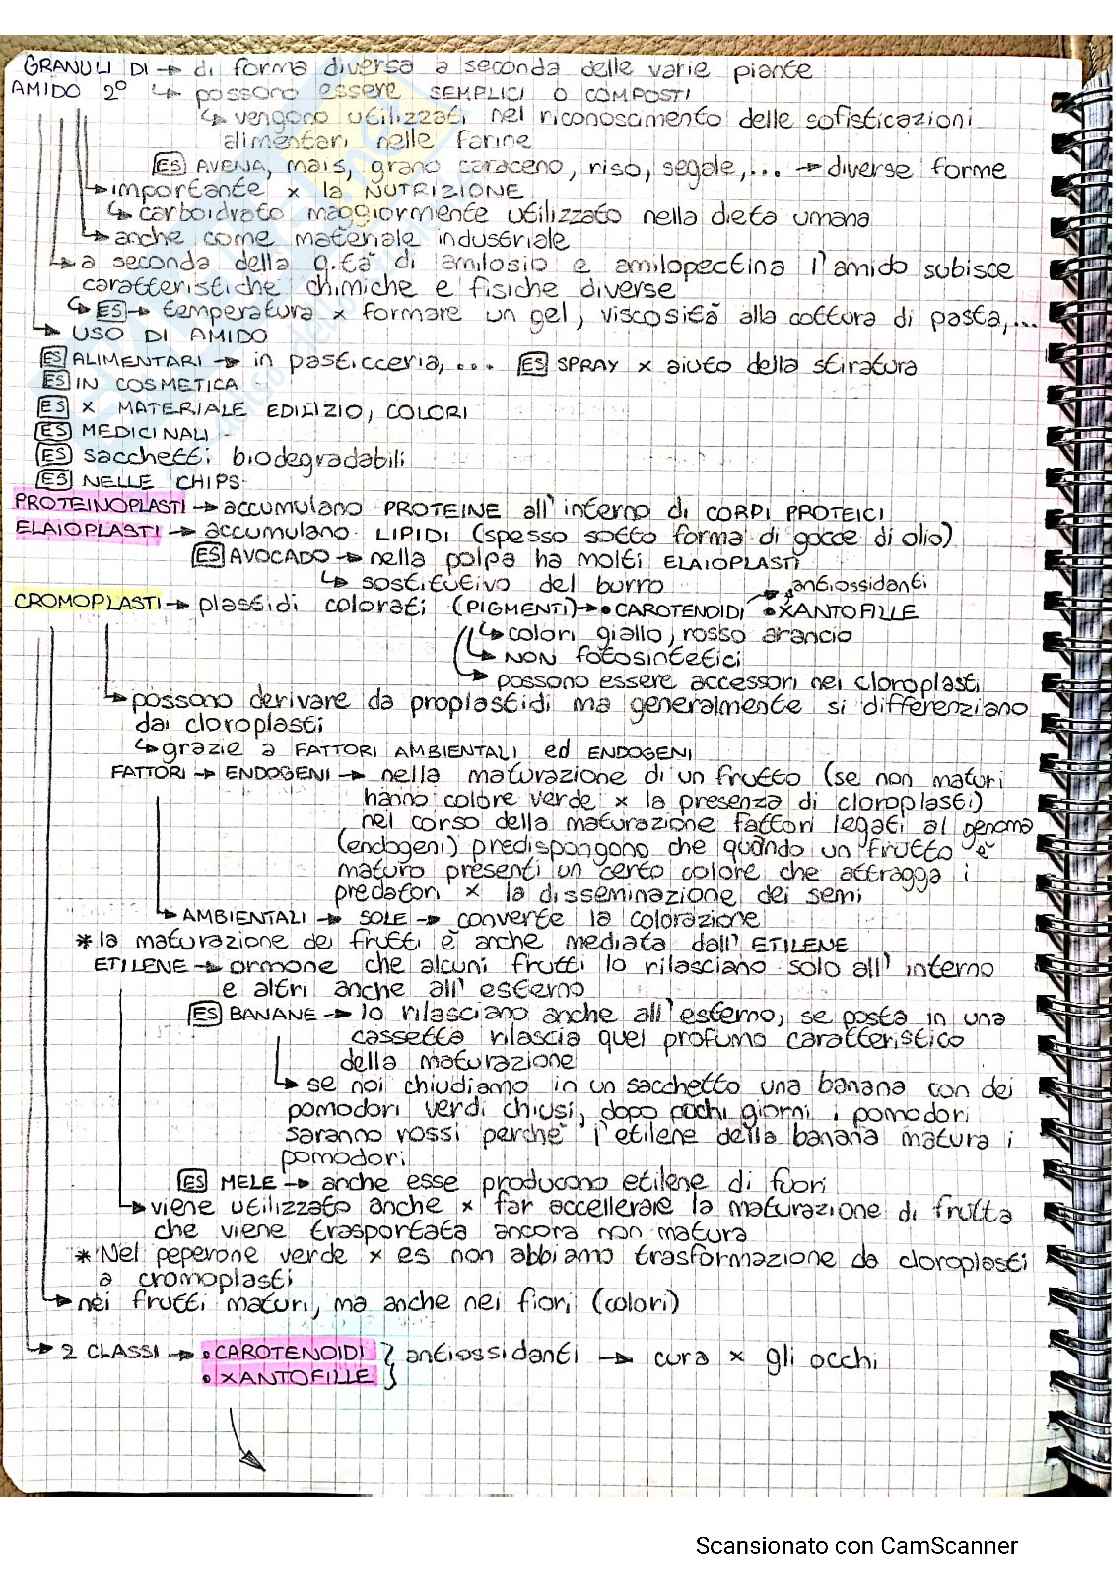 GRANULI DI → di forma diversa a seconda delle varie piante
AMIDO 2° ↳ possono essere SEMPLICI O COMPOSTI
↳ vengono utilizzati nel riconoscimento delle sofisticazioni
alimentari nelle farine
ES AVENA, mais, grano caraceno, riso, segale,... → diverse forme
↳ importante x la NUTRIZIONE
↳ carboidrato maggiormente utilizzato nella dieta umana
↳ anche come materiale industriale
↳ a seconda della q.tà di amilosio e amilopectina l'amido subisce
caratteristiche chimiche e fisiche diverse
↳ ES → temperatura x formare un gel, viscosità alla cottura di pasta,...
→ USO DI AMIDO
ES ALIMENTARI → in pasticceria,... ES SPRAY x aiuto della stiratura
ES IN COSMETICA
ES x MATERIALE EDILIZIO, COLORI
ES MEDICINALI
ES sacchetti biodegradabili
ES NELLE CHIPS
PROTEINOPLASTI → accumulano PROTEINE all'interno di CORPI PROTEICI
ELAIOPLASTI → accumulano LIPIDI (spesso sotto forma di gocce di olio)
ES AVOCADO → nella polpa ha molti ELAIOPLASTI
↳ sostitutivo del burro → antiossidanti
CROMOPLASTI → plastidi colorati (PIGMENTI) → • CAROTENOIDI • XANTOFILLE
↳ colori giallo, rosso arancio
↳ NON fotosintetici
↳ possono essere accessori nei cloroplasti
↳ possono derivare da proplastidi ma generalmente si differenziano
dai cloroplasti
↳ grazie a FATTORI AMBIENTALI ed ENDOGENI
FATTORI → ENDOGENI → nella maturazione di un frutto (se non maturi
hanno colore verde x la presenza di cloroplasti)
nel corso della maturazione fattori legati al genoma
(endogeni) predispongono che quando un frutto è
maturo presenti un certo colore che attragga i
predatori x la disseminazione dei semi
↳ AMBIENTALI → SOLE → converte la colorazione
* la maturazione dei frutti è anche mediata dall' ETILENE
ETILENE → ormone che alcuni frutti lo rilasciano solo all' interno
e altri anche all' esterno
ES BANANE → lo rilasciano anche all'esterno, se posta in una
cassetta rilascia quel profumo caratteristico
della maturazione
↳ se noi chiudiamo in un sacchetto una banana con dei
pomodori verdi chiusi, dopo pochi giorni i pomodori
saranno rossi perchè l'etilene della banana matura i
pomodori
ES MELE → anche esse producono etilene di fuori
↳ viene utilizzato anche x far accellerare la maturazione di frutta
che viene trasportata ancora non matura
* Nel peperone verde x es non abbiamo trasformazione da cloroplasti
a cromoplasti
↳ nei frutti maturi, ma anche nei fiori (colori)
↳ 2 CLASSI → • CAROTENOIDI } antiossidanti → cura x gli occhi
• XANTOFILLE
Scansionato con CamScanner